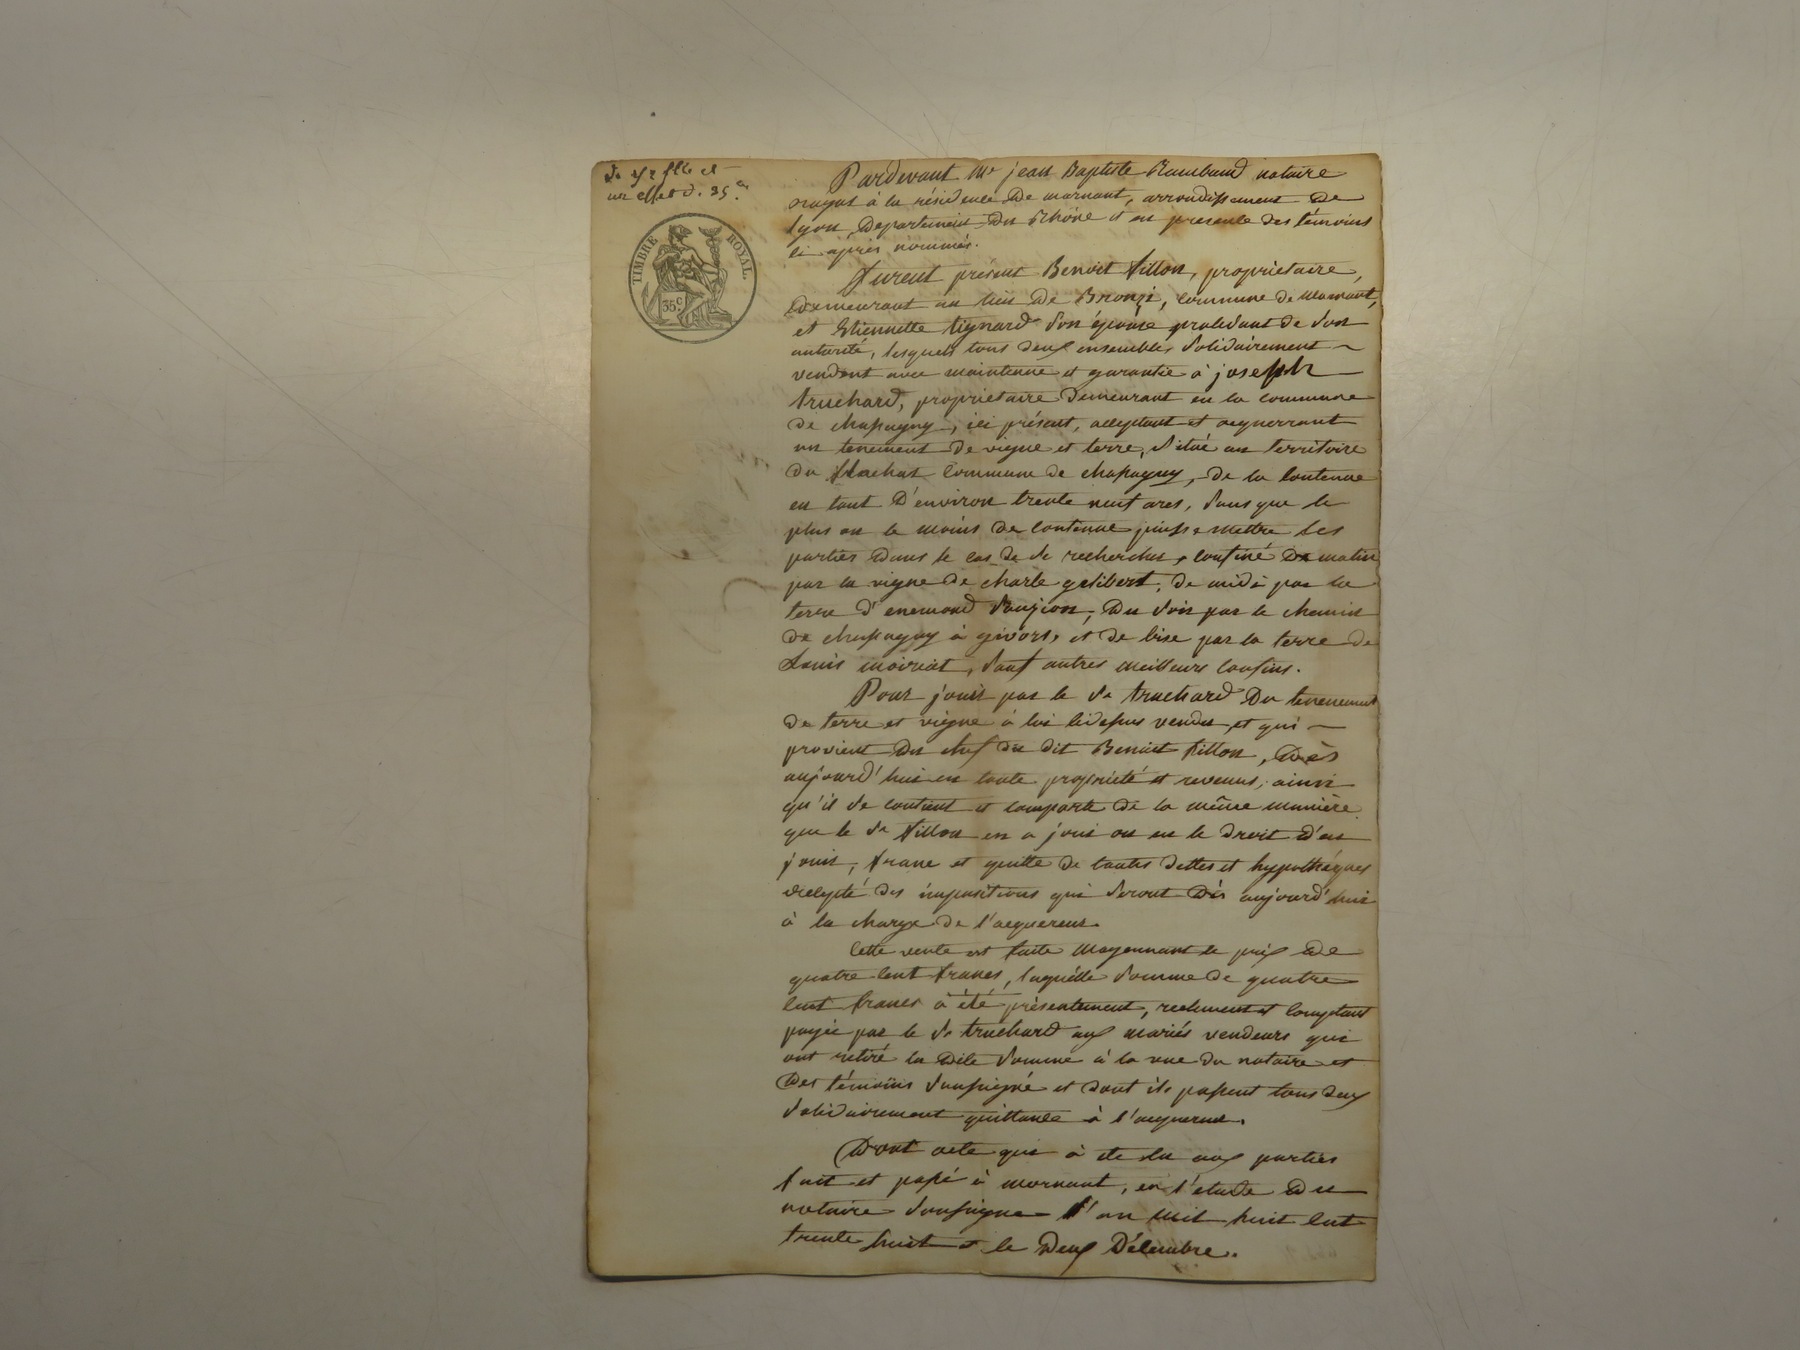 TIMBRE ROYAL
35 c.
Pardevant Me jean Baptiste Rambaud notaire
royal à la résidence De mornant, arrondissement De
Lyon, Departement Du Rhône et en presence des témoins
ci après nommés.
Furent présent Benoit fillon, propriétaire,
Demeurant au lieu De Bronzi, commune de Mornant,
et Etiennette tignard son épouse procédant de son
autorité, lesquels tous deux ensembles, solidairement
vendent avec maintenue et garantie à joseph
truchard, propriétaire demeurant en la commune
de chassagny, ici présent, acceptant et acquerrant
un tenement de vigne et terre, situé au territoire
du flachat commune de chassagny, de la contenue
en tout D'environ trente neuf ares, sans que le
plus ou le moins de contenue puisse mettre les
parties dans le cas de se rechercher, confiné De matin
par la vigne de charle gelibert, de midi par la
terre d'enemond Soujion, du soir par le chemin
de chassagny à givors, et de bise par la terre de
Louis moiriat, sauf autres meilleurs confins.
Pour jouir par le Sr truchard Du tenement
de terre et vigne à lui cidessus vendu et qui
provient du chef du dit Benoit fillon, Dès
aujourd'hui en toute propriété et revenus, ainsi
qu'il se contient et comporte de la même manière
que le Sr fillon en a joui ou eu le droit d'en
jouir, franc et quitte de toutes dettes et hypothéques
excepté des impositions qui seront Dès aujourd'hui
à la charge de l'acquereur.
Cette vente est faite Moyennant le prix De
quatre cent francs, laquelle somme de quatre
cent francs à été présentement, reelement et comptant
payée par le Sr truchard aux mariés vendeurs qui
ont retiré la dite somme à la vue du notaire et
Des témoins soussigné et dont ils passent tous deux
solidairement quittance à l'acquereur.
Dont acte qui à été lu aux parties
fait et passé à mornant, en l'etude Du
notaire soussigne l'an mil huit cent
trente huit et le Deux Décembre.